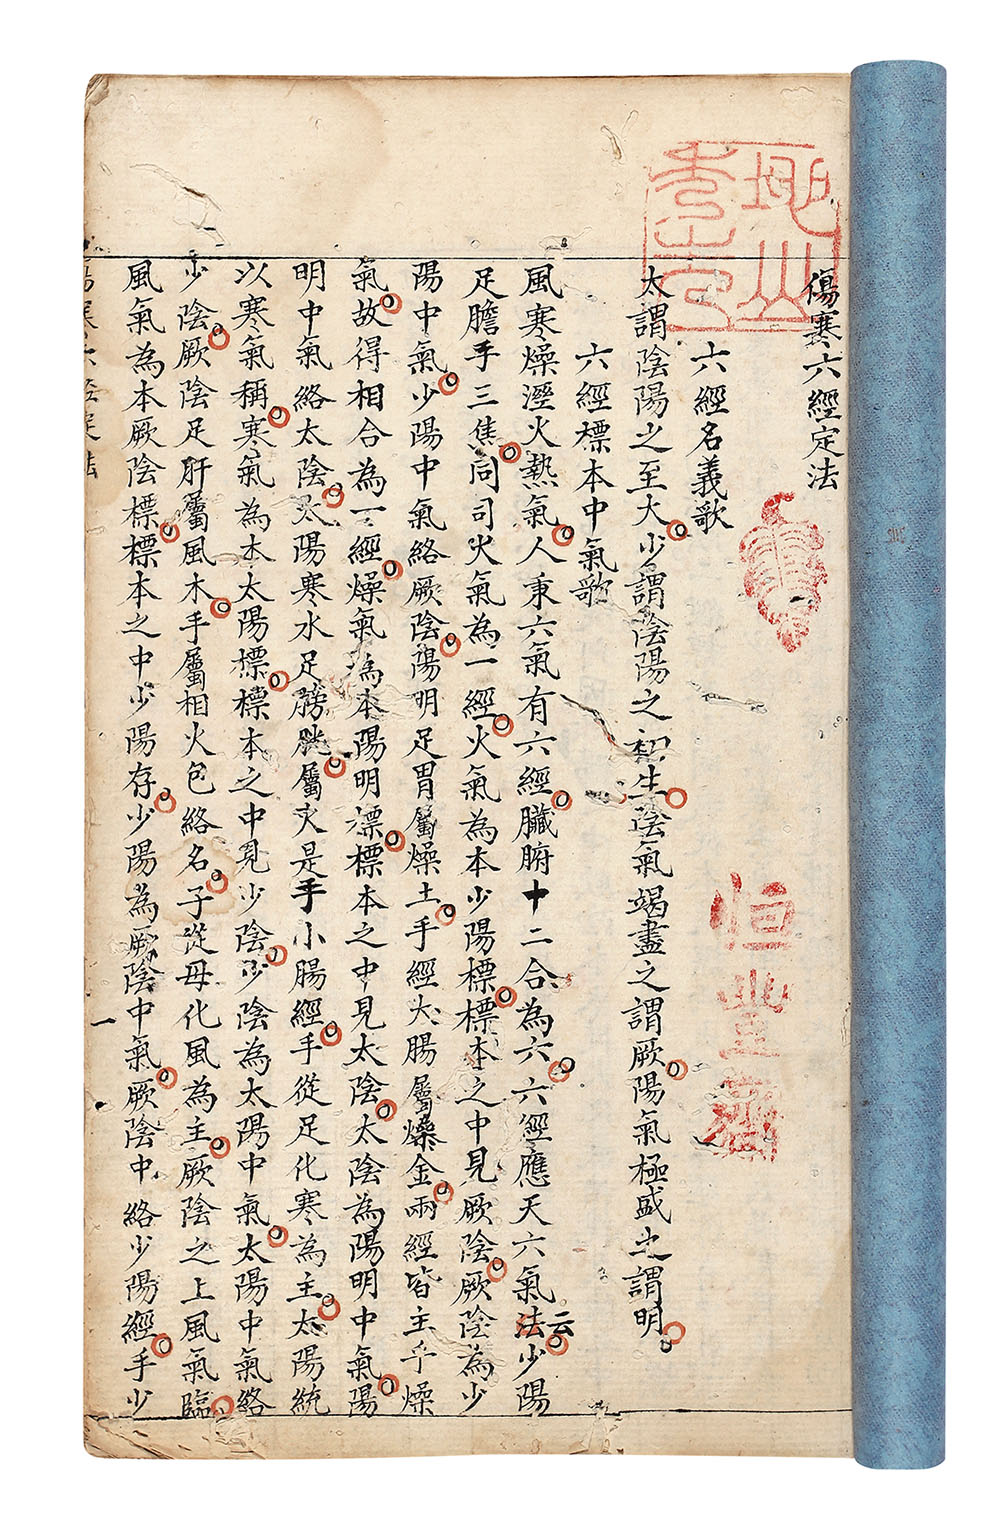 傷寒六經定法
六經名義歌
太謂陰陽之至大少謂陰陽之初生陰氣竭盡之謂厥陽氣極盛之謂明
六經標本中氣歌
風寒燥溼火熱氣人秉六氣有六經臟腑十二合為六六經應天六氣法云少陽
足膽手三焦同司火氣為一經火氣為本少陽標標本之中見厥陰厥陰為少
陽中氣少陽中氣絡厥陰陽明足胃屬燥土手經大腸屬燥金兩經皆主乎燥
氣故得相合為一經燥氣為本陽明標標本之中見太陰太陰為陽明中氣陽
明中氣絡太陰太陽寒水足膀胱屬火是手小腸經手從足化寒為主太陽統
以寒氣稱寒氣為本太陽標標本之中見少陰少陰為太陽中氣太陽中氣絡
少陰厥陰足肝屬風木手屬相火包絡名子從母化風為主厥陰之上風氣臨
風氣為本厥陰標標本之中少陽存少陽為厥陰中氣厥陰中絡少陽經手少
傷寒六經定法
一
恒業齋